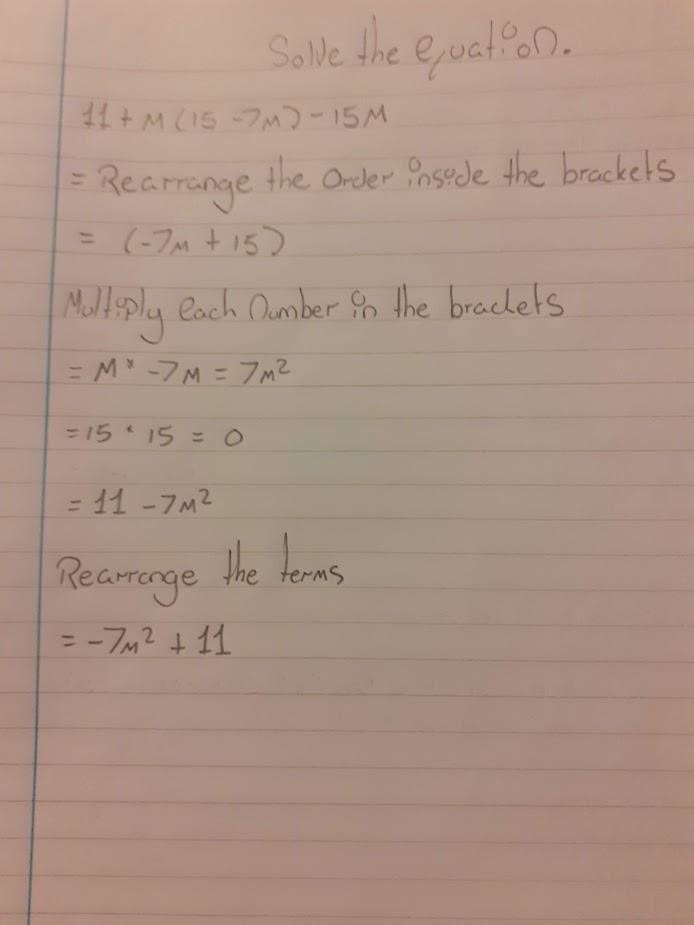 Solve the equation.
11 + M (15 - 7M) - 15M
= Rearrange the Order inside the brackets
= (-7M + 15)
Multiply each number in the brackets
= M * -7M = 7M²
= 15 * 15 = 0
= 11 - 7M²
Rearrange the terms
= -7M² + 11